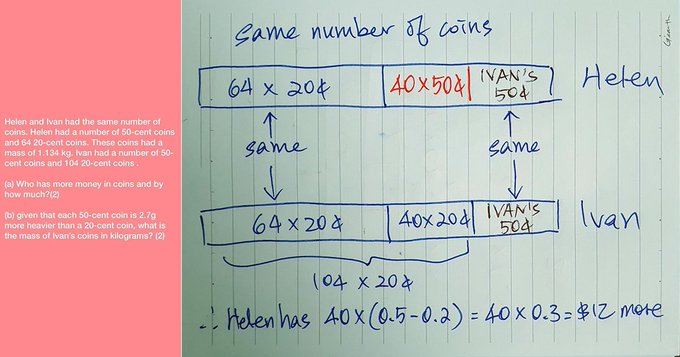 Helen and Ivan had the same number of
coins. Helen had a number of 50-cent coins
and 64 20-cent coins. These coins had a
mass of 1.134 kg. Ivan had a number of 50-
cent coins and 104 20-cent coins .
(a) Who has more money in coins and by
how much?(2)
(b) given that each 50-cent coin is 2.7g
more heavier than a 20-cent coin, what is
the mass of Ivan's coins in kilograms? (2)
same number of coins
64 x 20¢ 40x50¢ IVAN'S 50¢ Helen
same same
64 x 20¢ 40x20¢ IVAN'S 50¢ Ivan
104 x 20¢
∴ Helen has 40x(0.5-0.2) = 40 x 0.3 = $12 more